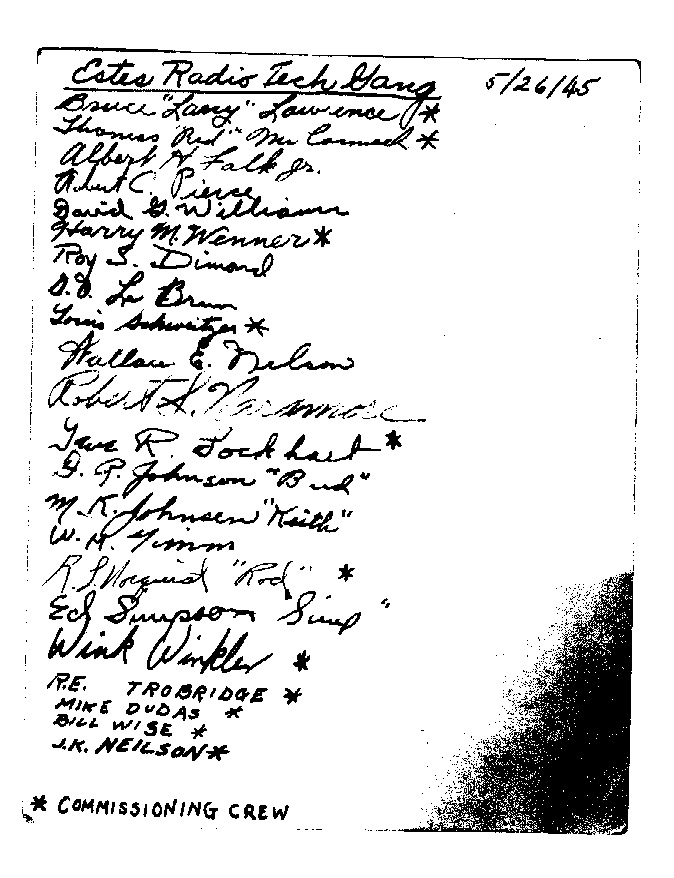 Estes Radio Tech Gang 5/26/45
Bruce "Larry" Lawrence *
Thomas "Red" Mc Cormack *
Albert H Falk Jr.
Albert C. Pierce
David G. Williams
Harry M. Wenner *
Roy S. Dimond
Le Brun
Louis Schweitzer *
Wallace E. Nelson
Robert S. Naramore
R. Lockhart *
G. P. Johnson "Bud"
M. K. Johnsen "Keith"
W. M. Timm
R. L. Norquist "Rod" *
Ed Simpson Simp "
Wink Winkler *
R.E. TROBRIDGE *
MIKE DUDAS *
BILL WISE *
J.K. NEILSON *
* COMMISSIONING CREW